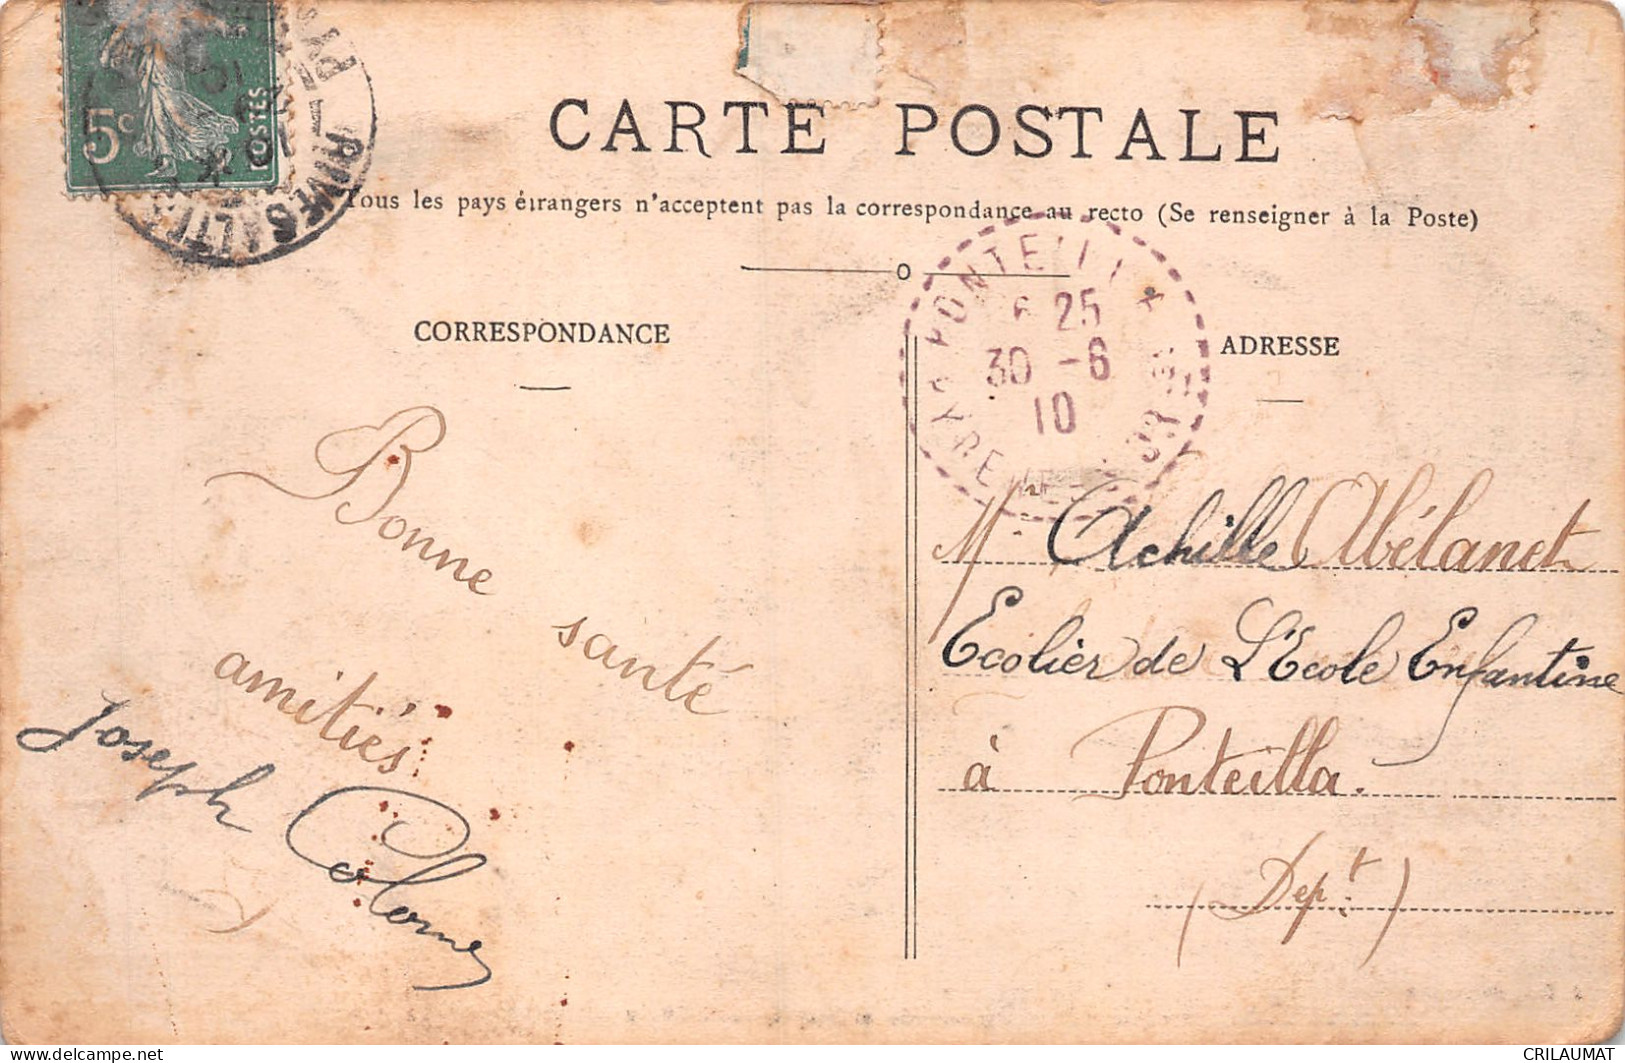 5c
POSTES
RIVESALTES
CARTE POSTALE
Tous les pays étrangers n'acceptent pas la correspondance au recto (Se renseigner à la Poste)
PONTEILLA
25
30 -6
10
CORRESPONDANCE
ADRESSE
Bonne santé
amitiés
Joseph Colomer
Mr Achille Abélanet
Ecolier de L'Ecole Enfantine
à Ponteilla.
(Dept.)
CRILAUMAT